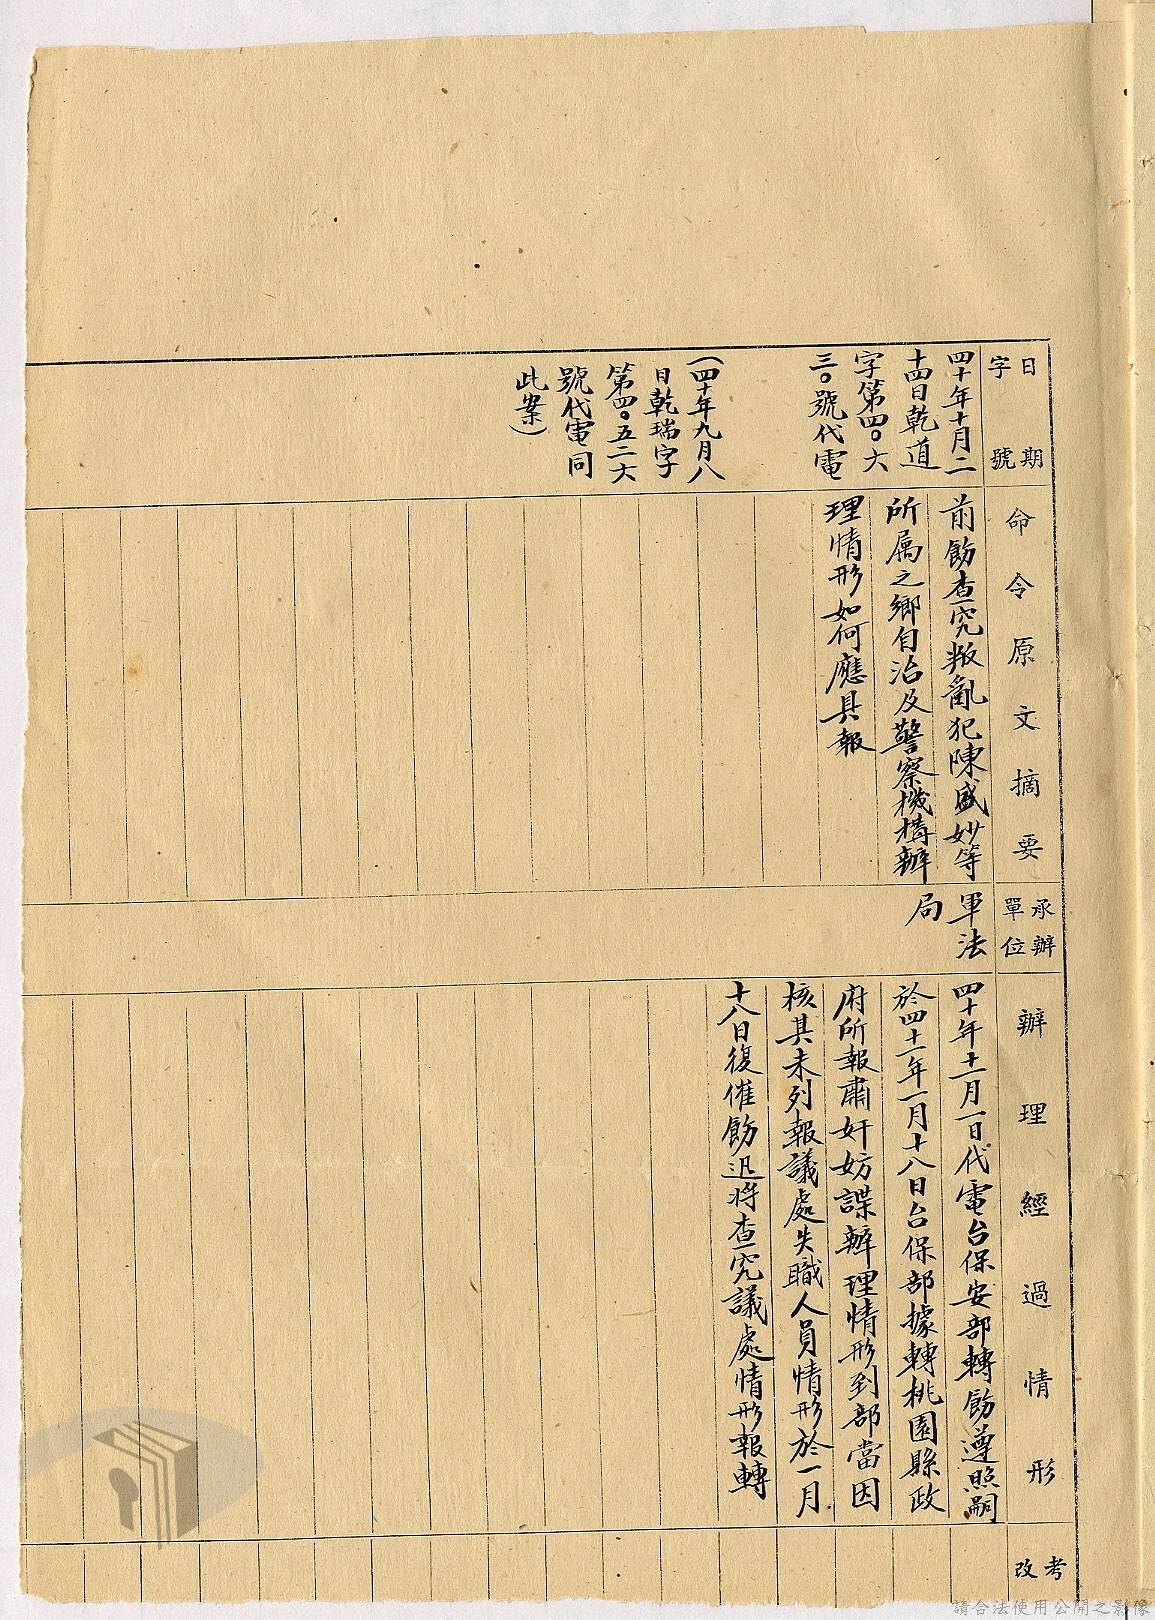 日期
字號
命令原文摘要
承辦
單位
辦理經過情形
考
改
四十年十月二
十四日乾道
字第四〇六
三〇號代電
(四十年九月八
日乾瑞字
第四〇五二六
號代電同
此案)
前飭查究叛亂犯陳盛妙等
所属之鄉自治及警察機構辦
理情形如何應具報
軍法
局
四十年十一月一日代電台保安部轉飭遵照嗣
於四十一年一月十八日台保部據轉桃園縣政
府所報肅奸妨諜辦理情形到部當因
核其未列報議處失職人員情形於一月
十八日復催飭迅將查究議處情形報轉
請合法使用公開之影像